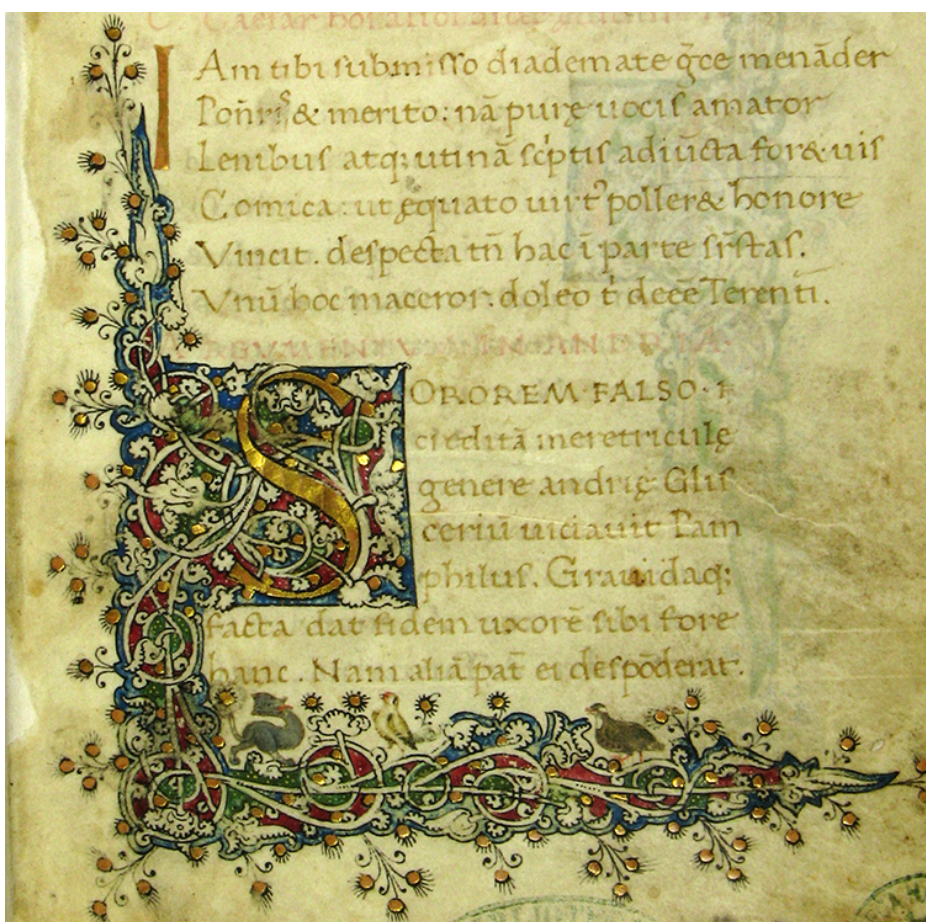 Caesar
IAm tibi submisso diademate g̃ce menãder
Poñri᷒ & merito: nã purę uocis amator
Lenibus atq; utinã sc̓ptis adiũcta for& uis
Comica: ut ęquato uirt᷒ poller& honore
Vincit. despecta tñ hac ĩ parte sr̃stas.
Vnũ hoc maceror: doleo t̓ deeẽ Terenti.
ARGVMENTVM IN ANDRIA.
SOROREM FALSO
creditã meretriculę
genere andrię Glis
ceriũ uiciauit Pam
philus. Grauidaq;
facta dat fidem uxorẽ sibi fore
hanc. Nam aliã pat̃ ei despõderat.